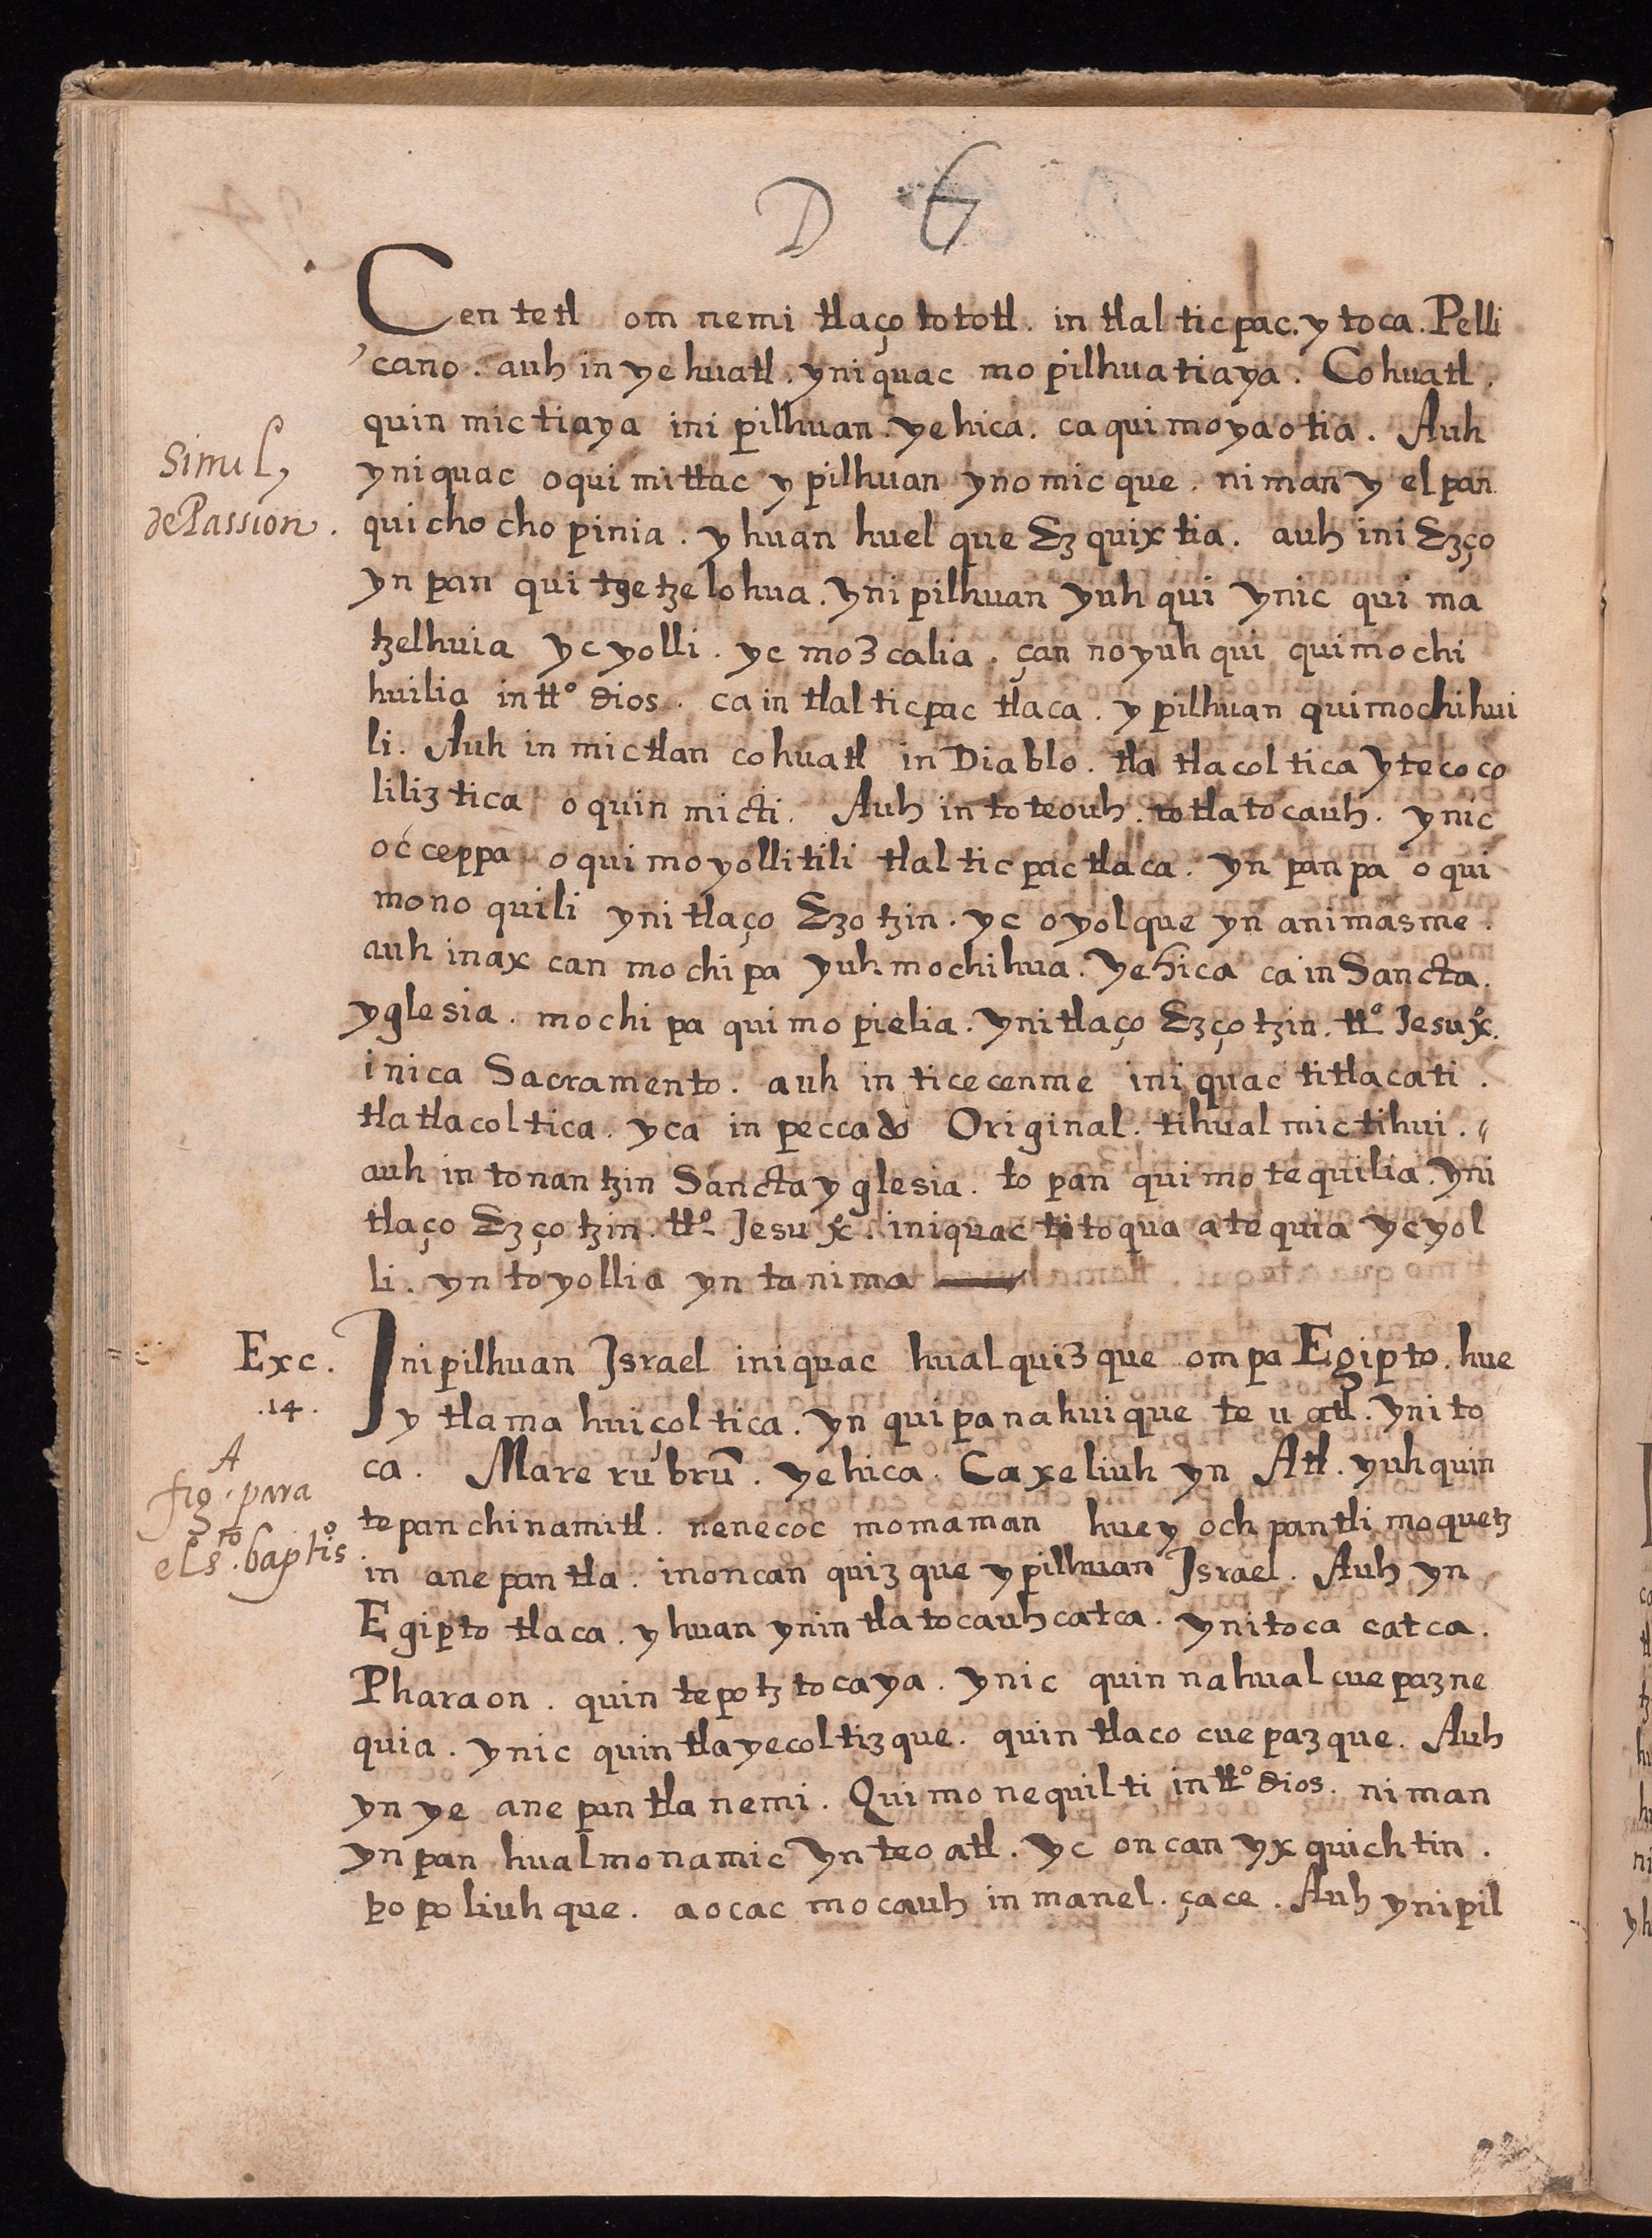 D G
Cen tetl om nemi tlaço tototl. in tlal ticpac. y toca. Pelli
cano. auh in yehuatl. yniquac mo pilhuatiaya. Cohuatl.
quin mictiaya ini pilhuan. yehica. ca quimoyaotia. Auh
Simil,
yniquac oqui mittac y pilhuan ynomicque. niman y elpan
de Passion.
quicho cho pinia. yhuan huel que Ezquixtia. auh ini Ezço
yn pan qui tzetzelohua. yni pilhuan yuh qui ynic qui ma
tzelhuia yc yolli. yc mo3calia. çan no yuh qui quimochi
huilia in ttº dios. ca in tlal ticpac tlaca. y pilhuan quimochihui
li. Auh in mictlan cohuatl in Diablo. tla tlacoltica ytecoco
liliztica oquin micti. Auh in toteouh. totlatocauh. ynic
occeppa oquimoyollitili tlal tic pactlaca. yn panpa oqui
mono quili ynitlaço Ezotzin. yc oyolque yn animasme.
auh inax can mochipa yuh mochihua. yehica ca in Sancta.
yglesia. mochi pa qui mo pielia. ynitlaço Ezçotzin. ttº Jesu xº.
inica Sacramento. auh in ticecenme iniquac titlacati.
tlatlacoltica. yca in peccado Original. tihual mictihui.
auh in tonantzin Sancta yglesia. to pan quimo tequilia. yni
tlaço Ezçotzin. ttº Jesu xº. iniquac titoqua atequia yc yol
li. yn toyollia yn tanima
Exc.
Inipilhuan Israel iniquac hualquizque ompa Egipto. hue
.14.
y tlamahuiçoltica. yn quipanahuique te u atl. yni to
A
ca. Mare rubrū. yehica. Caxeliuh yn Atl. yuhquin
fig. para
tepanchinamitl. nenecoc momaman huey ochpantli moquetz
el s.to baptisº
in anepantla. inoncan quizque ypilhuan Israel. Auh yn
Egipto tlaca. yhuan ynin tlatocauhcatca. ynitoca catca.
Pharaon. quin tepotztocaya. ynic quin nahualcuepazne
quia. ynic quintlayecoltizque. quin tlaco cuepazque. Auh
yn ye anepantla nemi. Quimonequilti in ttº dios. niman
ynpan hualmonamic yn teoatl. yc oncan yxquichtin.
popoliuhque. aocac mocauh in manel. çace. Auh ynipil